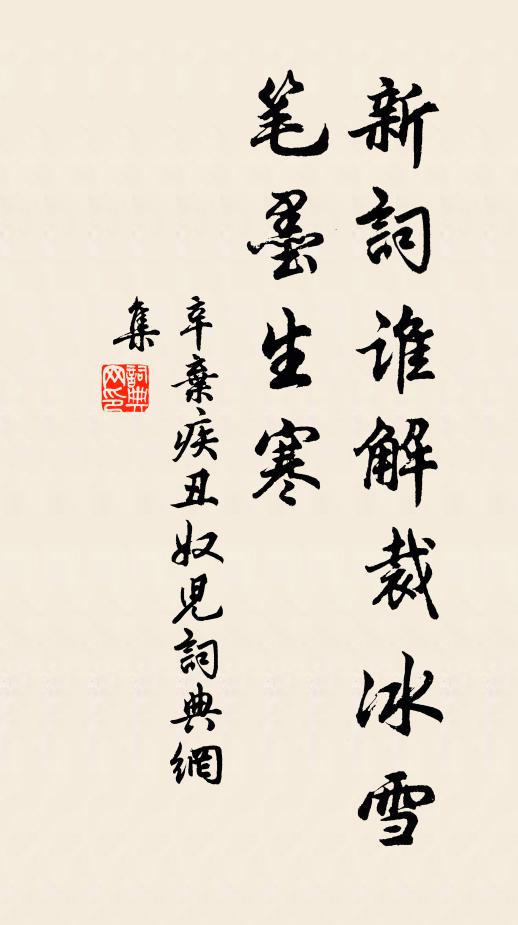 新詞谁解裁冰雪
笔墨生寒
辛棄疾丑奴児詞典網
集
詞典
网印